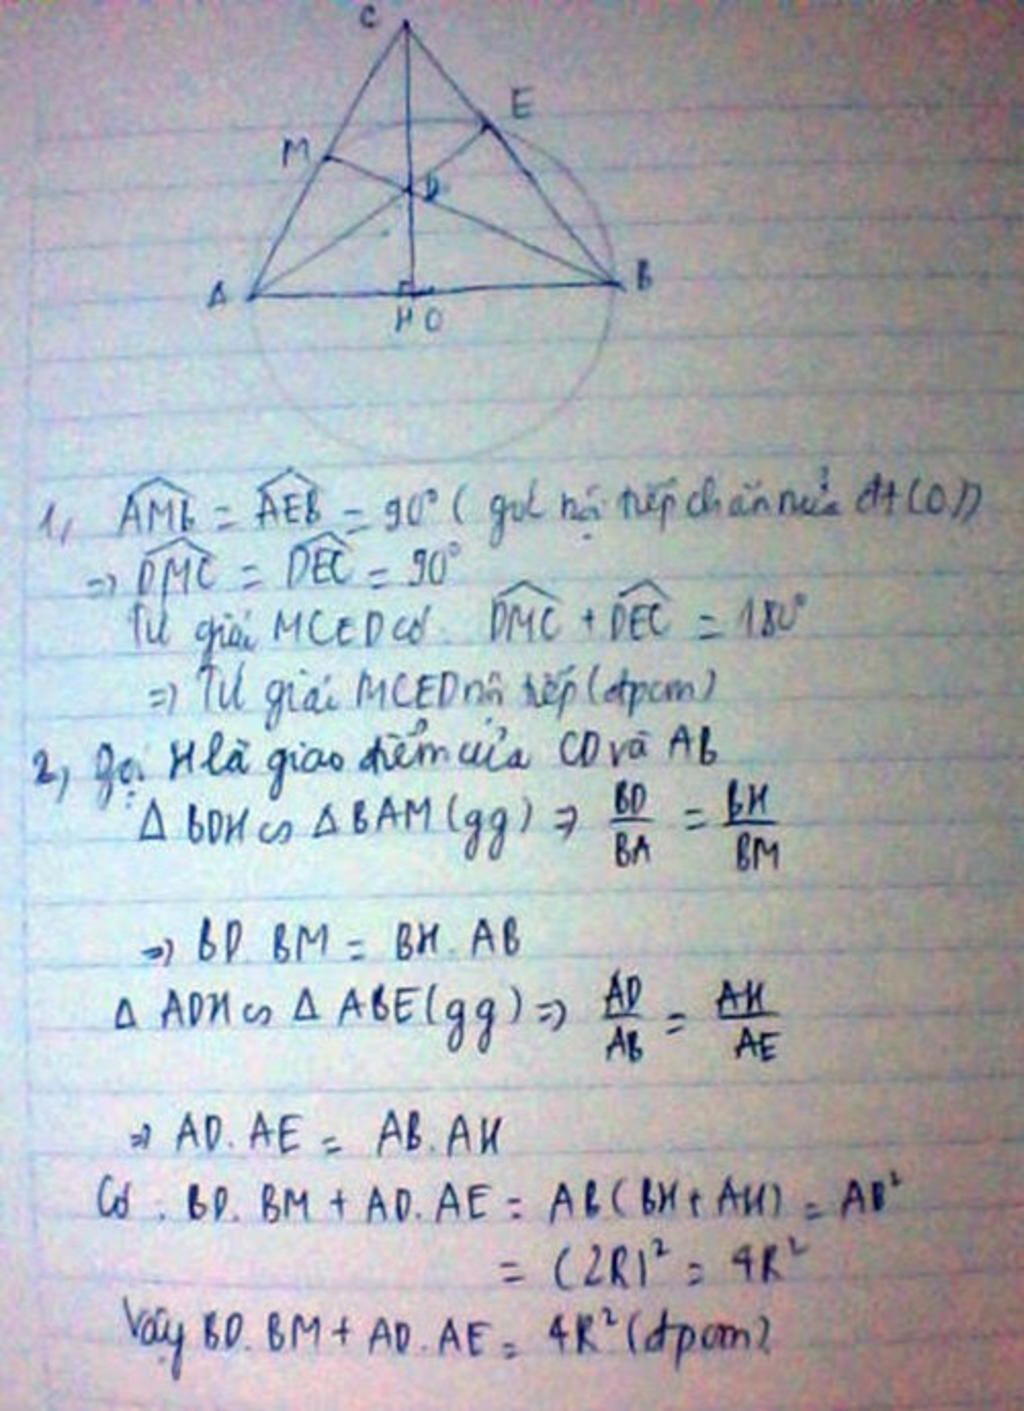 C
E
M
D
A
B
H O
1, AMB = AEB = 90° ( góc nội tiếp chắn nửa đt (O))
=> DMC = DEC = 90°
Tứ giác MCED có DMC + DEC = 180°
=> Tứ giác MCED nội tiếp (đpcm)
2, Gọi H là giao điểm của CD và AB
Δ BDH ∽ Δ BAM (gg) => BD/BA = BH/BM
=> BD. BM = BH. AB
Δ ADH ∽ Δ ABE (gg) => AD/AB = AH/AE
=> AD. AE = AB. AH
Có : BD. BM + AD. AE = AB ( BH + AH) = AB²
= (2R)² = 4R²
Vậy BD. BM + AD. AE = 4R² (đpcm)